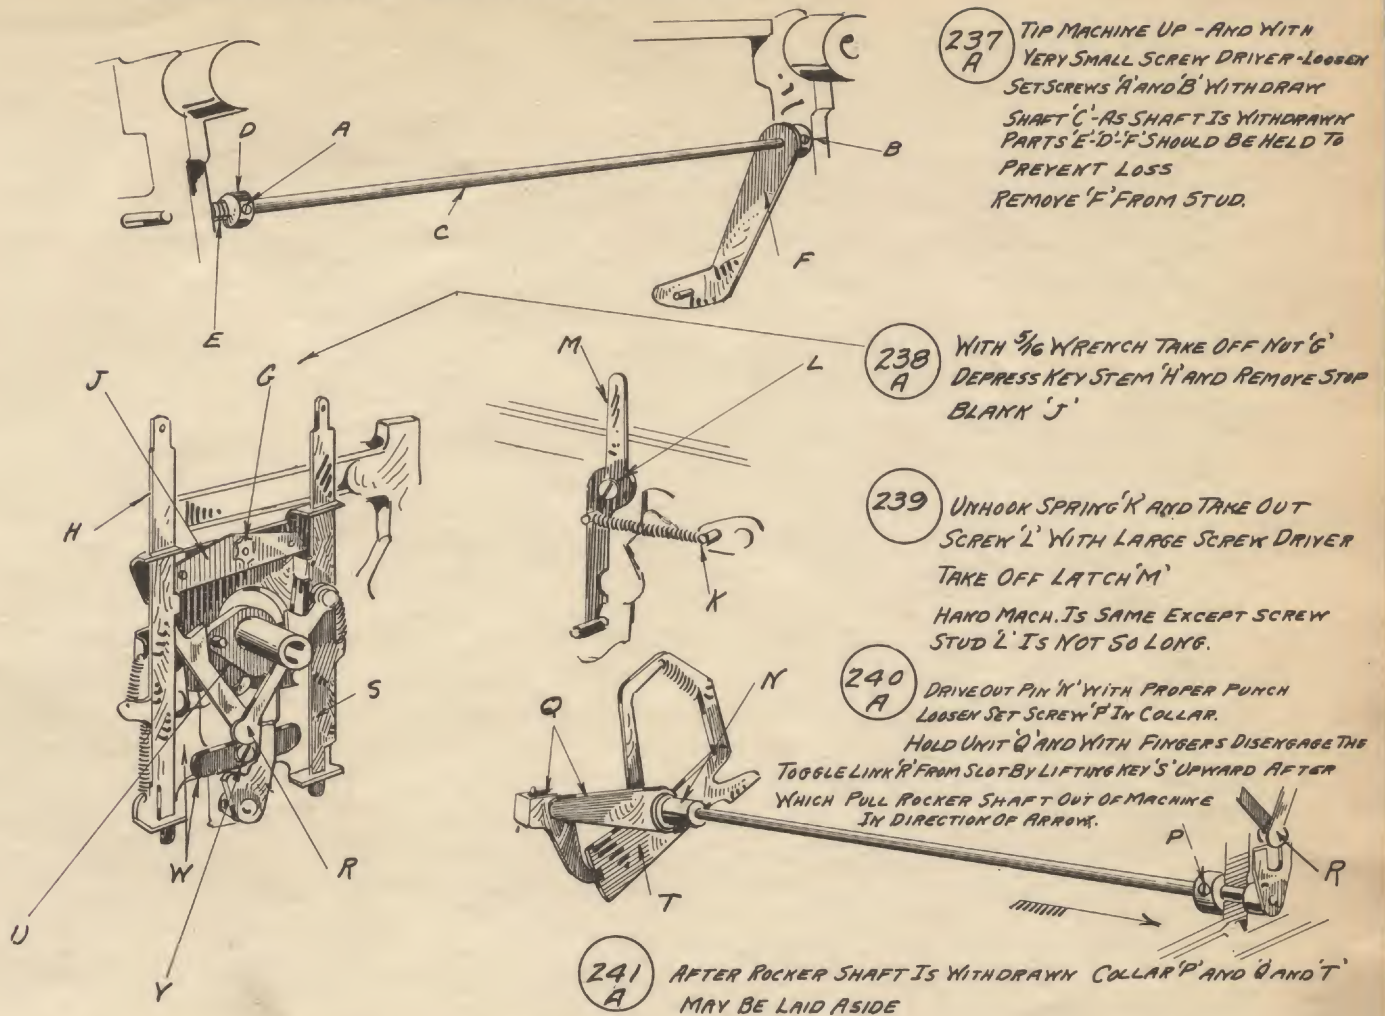 237
A
TIP MACHINE UP - AND WITH
VERY SMALL SCREW DRIVER - LOOSEN
SET SCREWS 'A' AND 'B' WITHDRAW
SHAFT 'C' - AS SHAFT IS WITHDRAWN
PARTS 'E'-'D'-'F' SHOULD BE HELD TO
PREVENT LOSS
REMOVE 'F' FROM STUD.
D
A
B
C
F
E
238
A
WITH 5/16 WRENCH TAKE OFF NUT 'G'
DEPRESS KEY STEM 'H' AND REMOVE STOP
BLANK 'J'
J
G
M
L
H
K
S
W
R
U
Y
239
UNHOOK SPRING 'K' AND TAKE OUT
SCREW 'L' WITH LARGE SCREW DRIVER
TAKE OFF LATCH 'M'
HAND MACH. IS SAME EXCEPT SCREW
STUD 'L' IS NOT SO LONG.
240
A
DRIVE OUT PIN 'N' WITH PROPER PUNCH
LOOSEN SET SCREW 'P' IN COLLAR.
HOLD UNIT 'Q' AND WITH FINGERS DISENGAGE THE
TOGGLE LINK 'R' FROM SLOT BY LIFTING KEY 'S' UPWARD AFTER
WHICH PULL ROCKER SHAFT OUT OF MACHINE
IN DIRECTION OF ARROW.
Q
N
P
R
T
241
A
AFTER ROCKER SHAFT IS WITHDRAWN COLLAR 'P' AND 'Q' AND 'T'
MAY BE LAID ASIDE